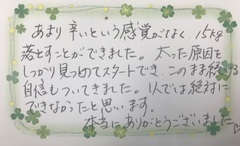 あまり辛いという感覚がなく、15kg
落とすことができました。太った原因を
しっかり見つめてスタートでき、このまま続ける
自信もついてきました。1人では絶対に
できなかったと思います。
本当にありがとうございました